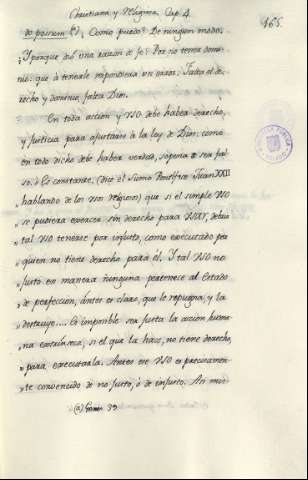 Christiana y Religiosa. Cap. 4.
165.
do possum (a). Como puedo? De ningun modo.
Y porque dió una razon de fe: Por no tener domi-
nio: que à tenerle imposible un
recho y dominio falta Dios.
En toda accion y uso debe haber derecho,
y justicia para ajustarse à la ley de Dios: como
en todo dicho debe haber verdad, sopena de ser fal-
so. Es constante, (dice el Sumo Pontifice Juan XXII
hablando de los uso Religioso) que si el simple uso
se pudiera exercer sin derecho para usar, debia
tal uso tenerse por injusto, como executado por
quien no tiene derecho para él. Y tal uso no
justo en manera ninguna pertenece al Estado
de perfeccion, ántes es claro, que le repugna, y la
destruye.... Es imposible sea justa la accion huma-
na extrinseca, si el que la hace, no tiene derecho
para executarla. Antes ese uso es precisamen-
te convencido de no justo, ó de injusto. Asi mis-
(a) Genes. 39